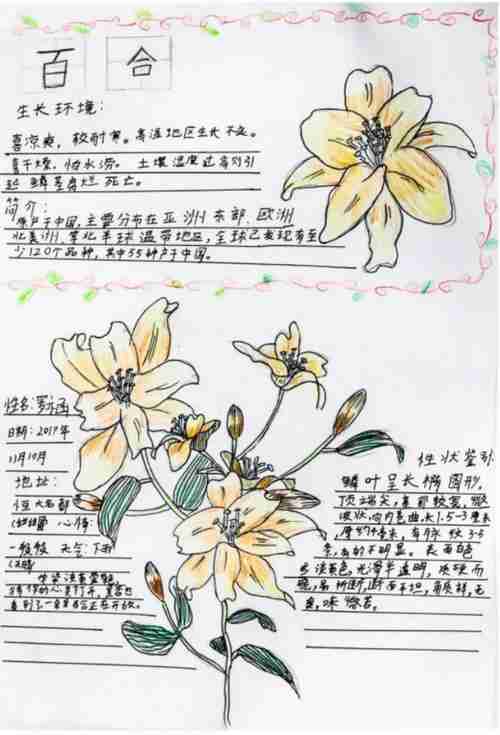 百 合
生长环境：
喜凉爽，较耐寒。高温地区生长不良。
喜干燥，怕水涝。土壤湿度过高则引
起鳞茎腐烂死亡。
简介：
原产于中国，主要分布在亚洲东部、欧洲
北美洲，等北半球温带地区，全球已发现有至
少120个品种，其中55种产于中国。
姓名：罗
日期：2019年
11月10月
地址：
恒大名都
心情：
一般般 天气：下雨
性状鉴别
鳞叶呈长椭圆形，
顶端尖，基部较宽，微
波状，向内卷曲，长1.5-3厘米
厚约4毫米，有脉纹3-5
条，有的不明显。表面白色
或淡黄色，光滑半透明，质硬而
脆，易折断，断面平坦，角质样，无
臭，味微苦。